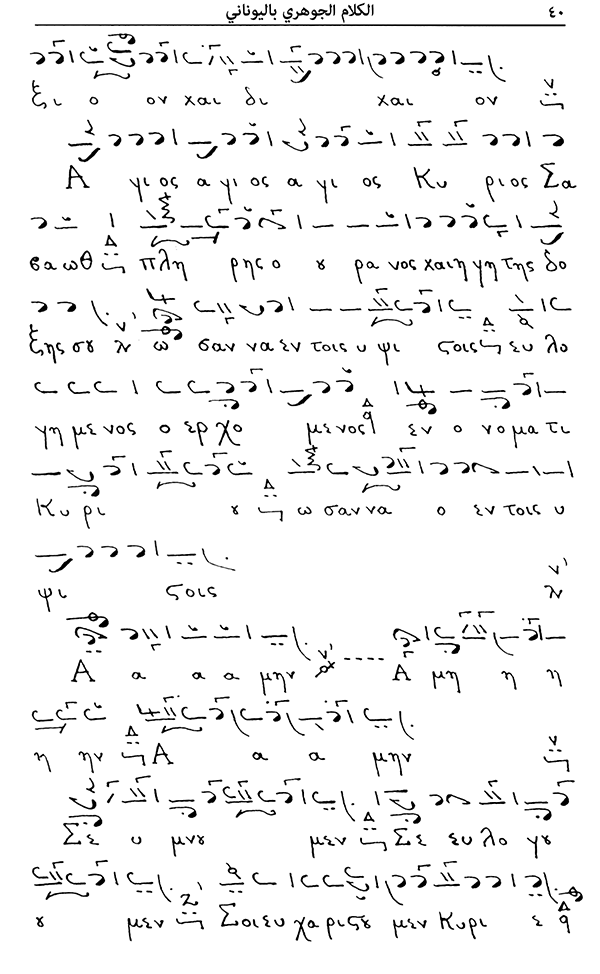 ٤٠ الكلام الجوهري باليوناني
ξι ο ον και δι και ον
Α γιος α γιος α γι ος Κυ ριος Σα
βα ωθ πλη ρης ο ȣ ρα νος και η γη της δο
ξης σȣ ω σαν να εν τοις υ ψι ϛοις ευ λο
γη με νος ο ερ χο με νος εν ο νο μα τι
Κυ ρι ȣ ω σαν να ο εν τοις υ
ψι ϛοις
Α α α α μην Α μη η η
η ην Α α α μην
Σε υ μνȣ μεν Σε ευ λο γȣ
ȣ μεν Σοι ευ χα ριςȣ μεν Κυ ρι ε